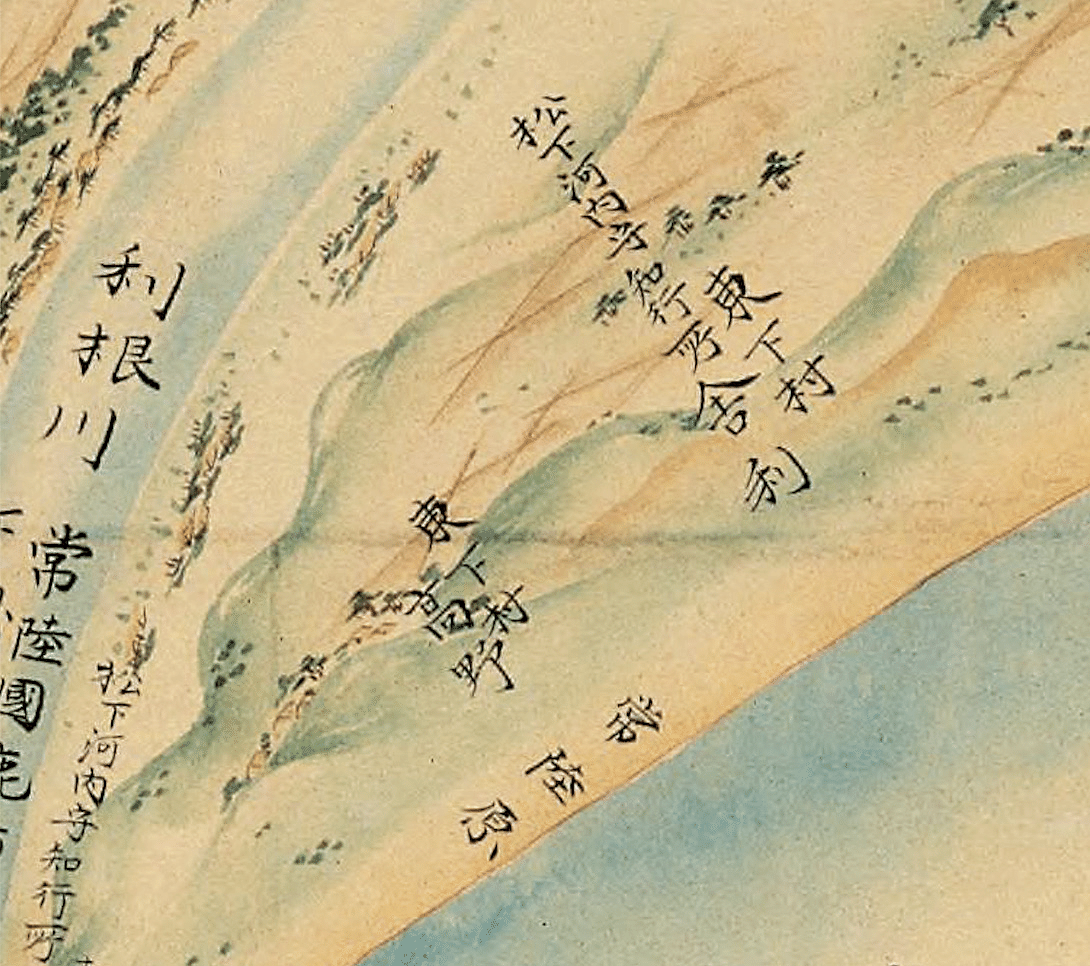 利根川
常陸國鹿
松下河内守知行所
東下村
舎利
東下村
高野
常陸原
松下河内守知行所